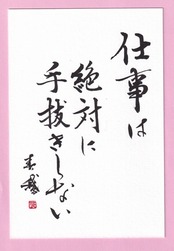 仕事は
絶対に
手抜きしない